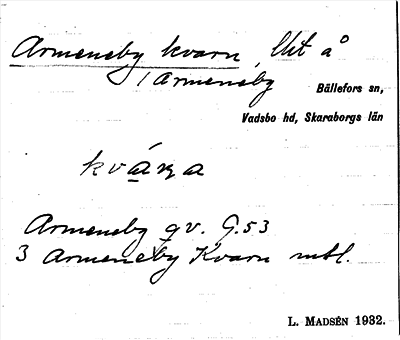 Armeneby kvarn, litt å
/ Armeneby
Bällefors sn,
Vadsbo hd, Skaraborgs län
kváṛa
Armeneby qv. G.53
3 Armeneby Kvarn mtl.
L. MADSÉN 1932.